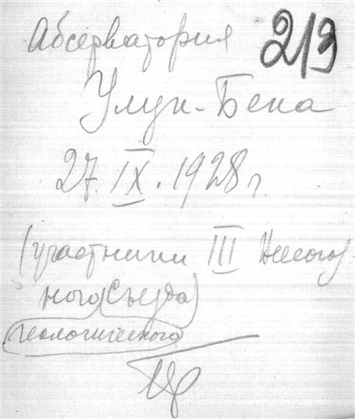 Абсерватория 213
Улуг-Бека
27. IX. 1928 г.
(участники III
ного съезда)
геологического